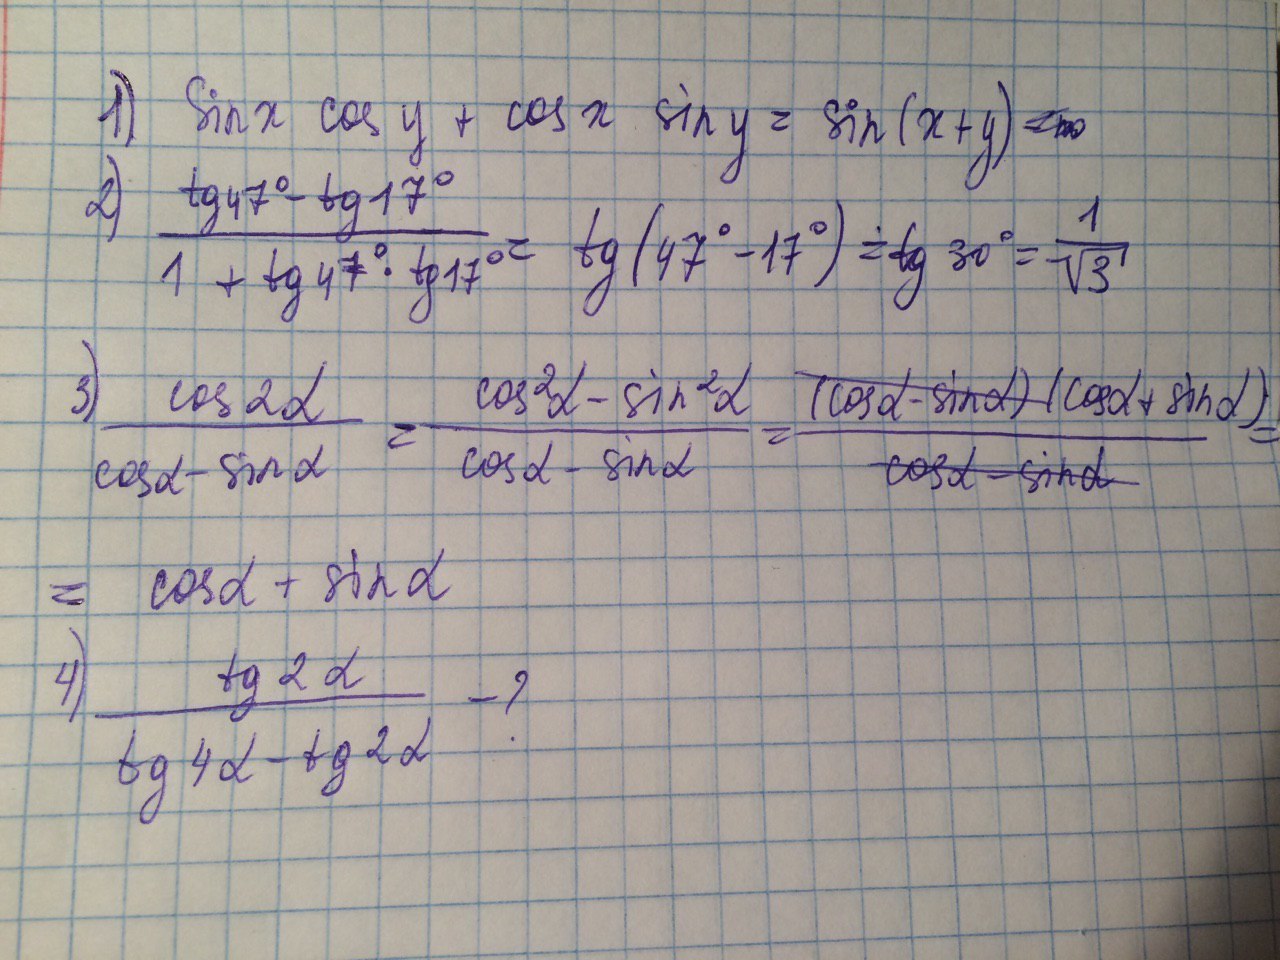 1) sinx cosy + cosx siny = sin(x+y)
2) (tg47° - tg17°) / (1 + tg47° · tg17°) = tg(47° - 17°) = tg 30° = 1/√3
3) cos2α / (cosα - sinα) = (cos²α - sin²α) / (cosα - sinα) = (cosα - sinα)(cosα + sinα) / (cosα - sinα) =
= cosα + sinα
4) tg2α / (tg4α - tg2α) - ?